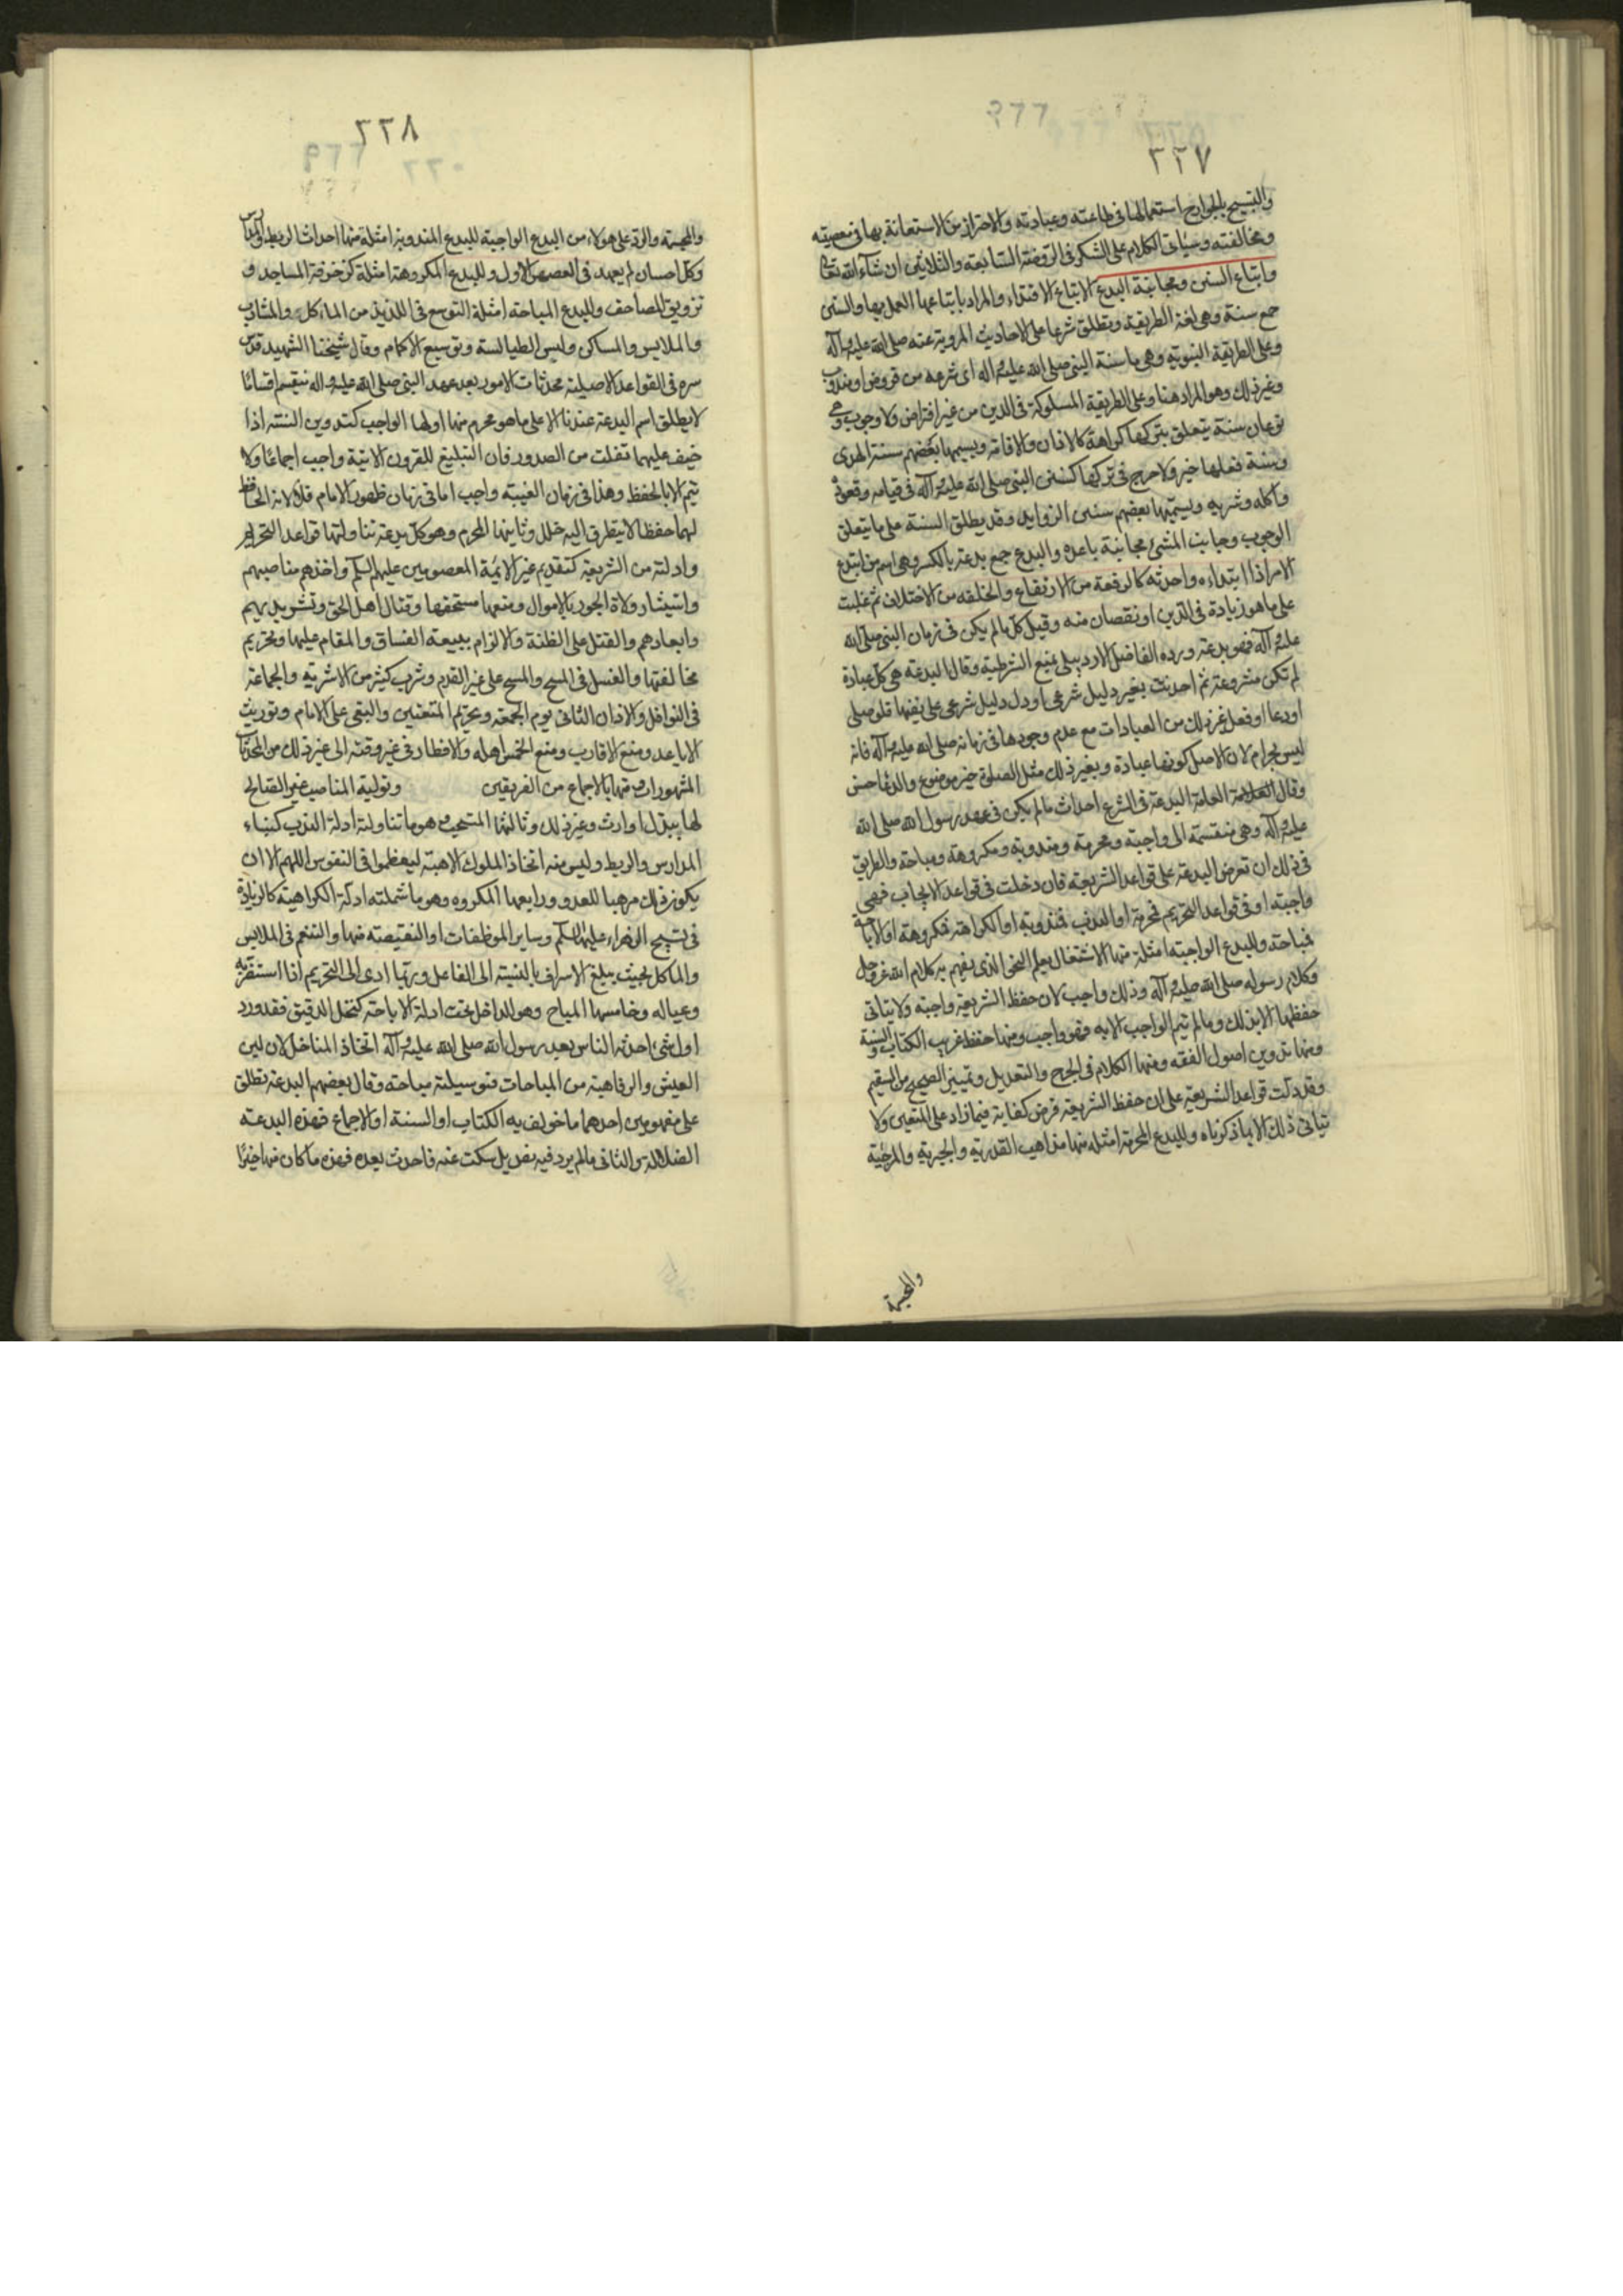 ٢٢٧
والتسبيح بالجوارح استعمالها في طاعته وعبادته والاحتراز من الاستعانة بها في معصيته
ومخالفته وسيأتي الكلام على الشكر في الروضة السابعة والثلاثين ان شاء الله تعالى
واتباع السنن ومجانبة البدع الاتباع الاقتداء والمراد باتباعها العمل بها والسنن
جمع سنة وهي لغة الطريقة وتطلق شرعا على الاحاديث المروية عنه صلى الله عليه وآله
وعلى الطريقة النبوية وهي ما سنه النبي صلى الله عليه وآله اى شرعه من فروض او مندوب
وغير ذلك وهو المراد هنا وعلى الطريقة المسلوكة في الدين من غير افتراض ولا وجوب وهي
نوعان سنة يتعلق بتركها كراهة كالاذان والاقامة ويسميها بعضهم سنة الهدى
وسنة فعلها خير ولا حرج في تركها كسنن النبي صلى الله عليه وآله في قيامه وقعوده
واكله وشربه ويسميها بعضهم سنن الزوايد وقد يطلق السنة على ما يتعلق
الوجوب وجانبت الشئ مجانبة باعده والبدع جمع بدعة بالكسر وهي اسم من ابتدع
الامر اذا ابتداءه واحدثه كالرفعة من الارتفاع والخلفه من الاختلاف ثم غلبت
على ما هو زيادة في الدين او نقصان منه وقيل كل ما لم يكن في زمان النبي صلى الله
عليه وآله فهو بدعة ورده الفاضل الاردبيلي بمنع الشرطية وقال البدعة هي كل عبادة
لم تكن مشروعة ثم احدثت بغير دليل شرعي او دل دليل شرعي على نفيها فلو صلى
او دعا او فعل غير ذلك من العبادات مع عدم وجودها في زمانه صلى الله عليه وآله فانه
ليس بحرام لان الاصل كونها عبادة وبغير ذلك مثل الصلوة خير موضوع والدعا حسن
وقال العلامة البدعة في الشرع احداث ما لم يكن في عهد رسول الله صلى الله
عليه وآله وهي منقسمة الى واجبة ومحرمة ومندوبة ومكروهة ومباحة والطريق
في ذلك ان تعرض البدعة على قواعد الشريعة فان دخلت في قواعد الايجاب فهي
واجبة او في قواعد التحريم فمحرمة او الندب فمندوبة او الكراهة فمكروهة او الاباحة
فمباحة وللبدع الواجبة امثلة منها الاشتغال بعلم النحو الذي يفهم به كلام الله عز وجل
وكلام رسوله صلى الله عليه وآله وذلك واجب لان حفظ الشريعة واجبة ولا يتاتى
حفظها الا بذلك وما لم يتم الواجب الا به فهو واجب ومنها حفظ غريب الكتاب والسنة
ومنها تدوين اصول الفقه ومنها الكلام في الجرح والتعديل وتمييز الصحيح من السقيم
وقد دلت قواعد الشريعة على ان حفظ الشريعة فرض كفاية فيما زاد على المتعين ولا
يتاتى ذلك الا بما ذكرناه وللبدع المحرمة امثلة منها مذاهب القدرية والجبرية والمرجئة
والمجسمة
٢٢٨
والمجسمة والرد على هولاء من البدع الواجبة للبدع المندوبة امثلة منها احداث الربط والمدارس
وكل احسان لم يعهد في العصر الاول وللبدع المكروهة امثلة كزخرفة المساجد و
تزويق المصاحف وللبدع المباحة امثلة التوسع في اللذيذ من المآكل والمشارب
والملابس والمساكن ولبس الطيالسة وتوسيع الاكمام وقال شيخنا الشهيد قدس
سره في القواعد الاصيلة محدثات الامور بعد عهد النبي صلى الله عليه واله تنقسم اقسامًا
لا يطلق اسم البدعة عندنا الا على ما هو محرم منها اولها الواجب كتدوين السنة اذا
خيف عليهما تفلت من الصدور فان التبليغ للقرون الاتية واجب اجماعًا ولا
يتم الا بالحفظ وهذا في زمان الغيبة واجب اما في زمان ظهور الامام فلا لانه الحافظ
لهما حفظا لا يتطرق اليه خلل وثانيها المحرم وهو كل بدعة تناولتها قواعد التحريم
وادلته من الشريعة كتقديم غير الائمة المعصومين عليهم السلم واخذهم مناصبهم
واستيثار ولاة الجور بالاموال ومنعها مستحقها وقتال اهل الحق وتشريدهم
وابعادهم والقتل على الظنة والالزام ببيعة الفساق والمقام عليها وتحريم
مخالفتها والغسل في المسح والمسح على غير القدم وشرب كثير من الاشربة والجماعة
في النوافل والاذان الثاني يوم الجمعة وتحريم المتعتين والبغى على الامام وتوريث
الاباعد ومنع الاقارب ومنع الخمس اهله والافطار في غير وقته الى غير ذلك من المحدثات
المشهورات ومنها بالاجماع من الفريقين وتولية المناصب غير الصالح
لها ببذل او ارث وغير ذلك وثالثها المستحب وهو ما تناولته ادلة الندب كبناء
المدارس والربط وليس منه اتخاذ الملوك الاهبة ليعظموا في النفوس اللهم الا ان
يكون ذلك مرهبا للعدو ورابعها المكروه وهو ما شملته ادلة الكراهية كالزيادة
في تسبيح الزهراء عليها السلم وساير الموظفات او النقيصة منها والتنعم في الملابس
والمآكل بحيث يبلغ الاسراف بالنسبة الى الفاعل وربما ادى الى التحريم اذا استضر به
وعياله وخامسها المباح وهو الداخل تحت ادلة الاباحة كنخل الدقيق فقد ورد
اول شئ احدثه الناس بعد رسول الله صلى الله عليه وآله اتخاذ المناخل لان لين
العيش والرفاهية من المباحات فوسيلته مباحة وقال بعضهم البدعة تطلق
على مفهومين احدهما ما خولف به الكتاب او السنة او الاجماع فهذه البدعة
الضلالة والثاني ما لم يرد فيه نص بل سكت عنه فاحدث بعده فهذه ما كان منها خيرًا